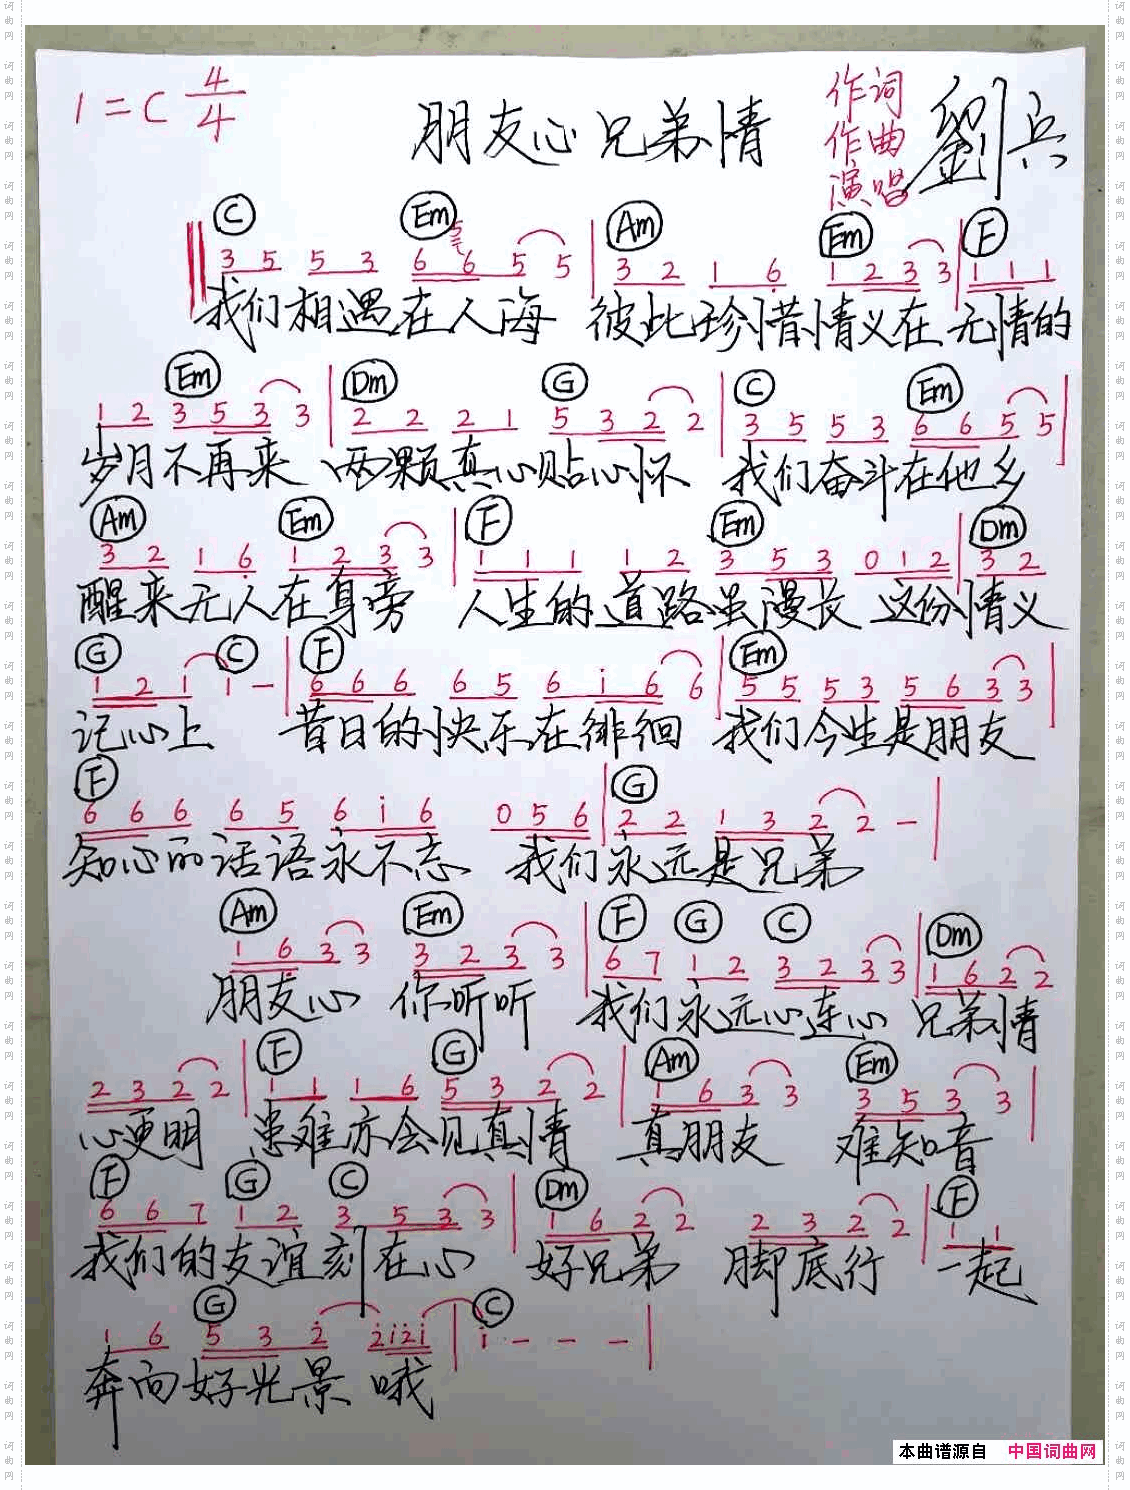 1=C 4/4
朋友心兄弟情
作词
作曲
演唱
劉兵
C Em Am Em F
3 5 5 3 6 6 5 5 3 2 1 6 1 2 3 3 1 1 1
我们相遇在人海 彼此珍惜情义在 无情的
Em Dm G C Em
1 2 3 5 3 3 2 2 2 1 5 3 2 2 3 5 5 3 6 6 5 5
岁月不再来 两颗真心贴心怀 我们奋斗在他乡
Am Em F Em Dm
3 2 1 6 1 2 3 3 1 1 1 1 2 3 5 3 0 1 2 3 2
醒来无人在身旁 人生的道路虽漫长 这份情义
G C F Em
1 2 1 1 － 6 6 6 6 5 6 i 6 6 5 5 5 3 5 6 3 3
记心上 昔日的快乐在徘徊 我们今生是朋友
F G
6 6 6 6 5 6 i 6 0 5 6 2 2 1 3 2 2 －
知心的话语永不忘 我们永远是兄弟
Am Em F G C Dm
1 6 3 3 3 2 3 3 6 7 1 2 3 2 3 3 1 6 2 2
朋友心 你听听 我们永远心连心 兄弟情
F G Am Em
2 3 2 2 1 1 1 6 5 3 2 2 1 6 3 3 3 5 3 3
心更明 患难亦会见真情 真朋友 难知音
F G C Dm F
6 6 7 1 2 3 5 3 3 1 6 2 2 2 3 2 2 1 1
我们的友谊刻在心 好兄弟 脚底行 一起
G C
1 6 5 3 2 2 i 2 i i － － －
奔向好光景 哦
本曲谱源自 中国词曲网